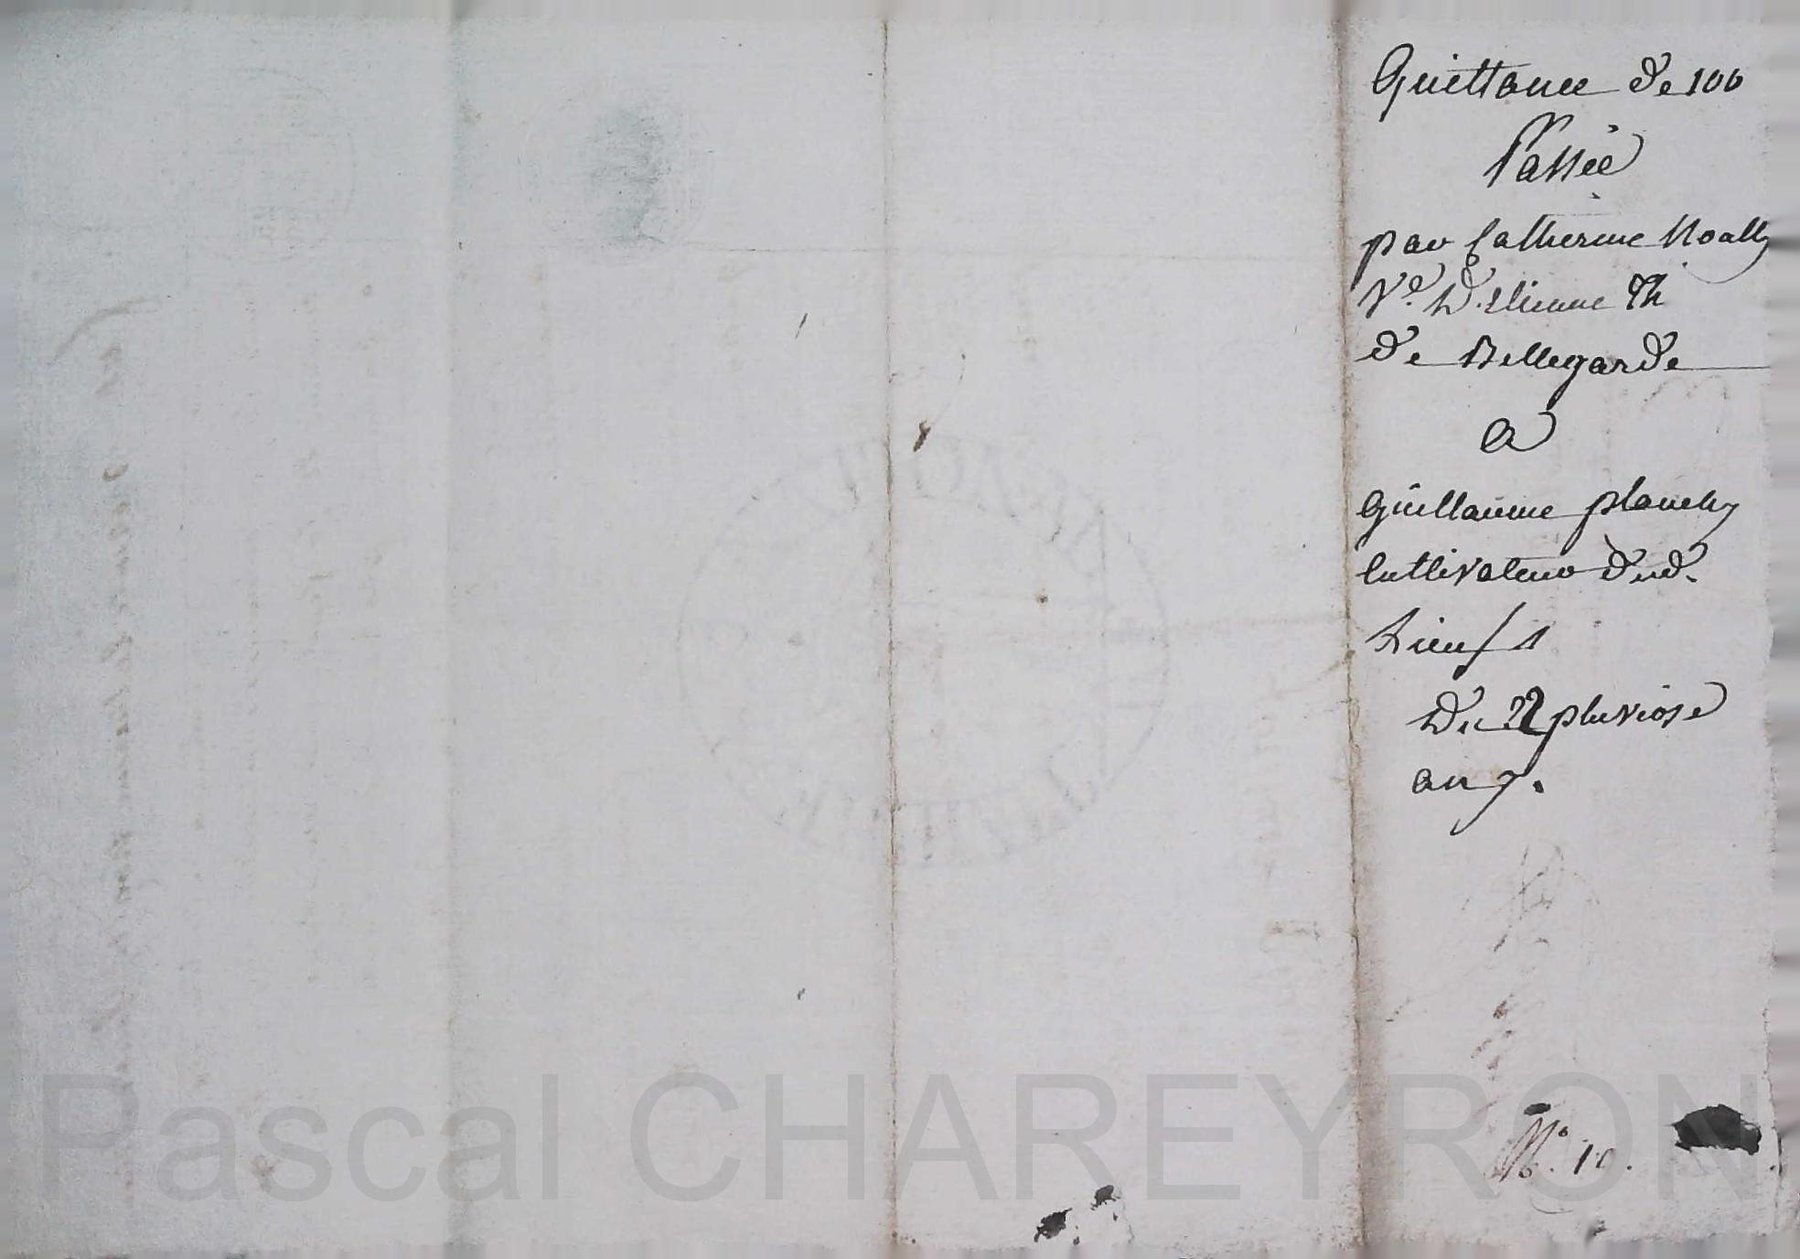 Quittance de 100
Passée
par Catherine Noally
Ve. d'Etienne Th
de Bellegarde
a
Guillaume planchy
Cultivateur dud.
Lieu
du 22 pluviose
an 7.
No. 10.
Pascal CHAREYRON